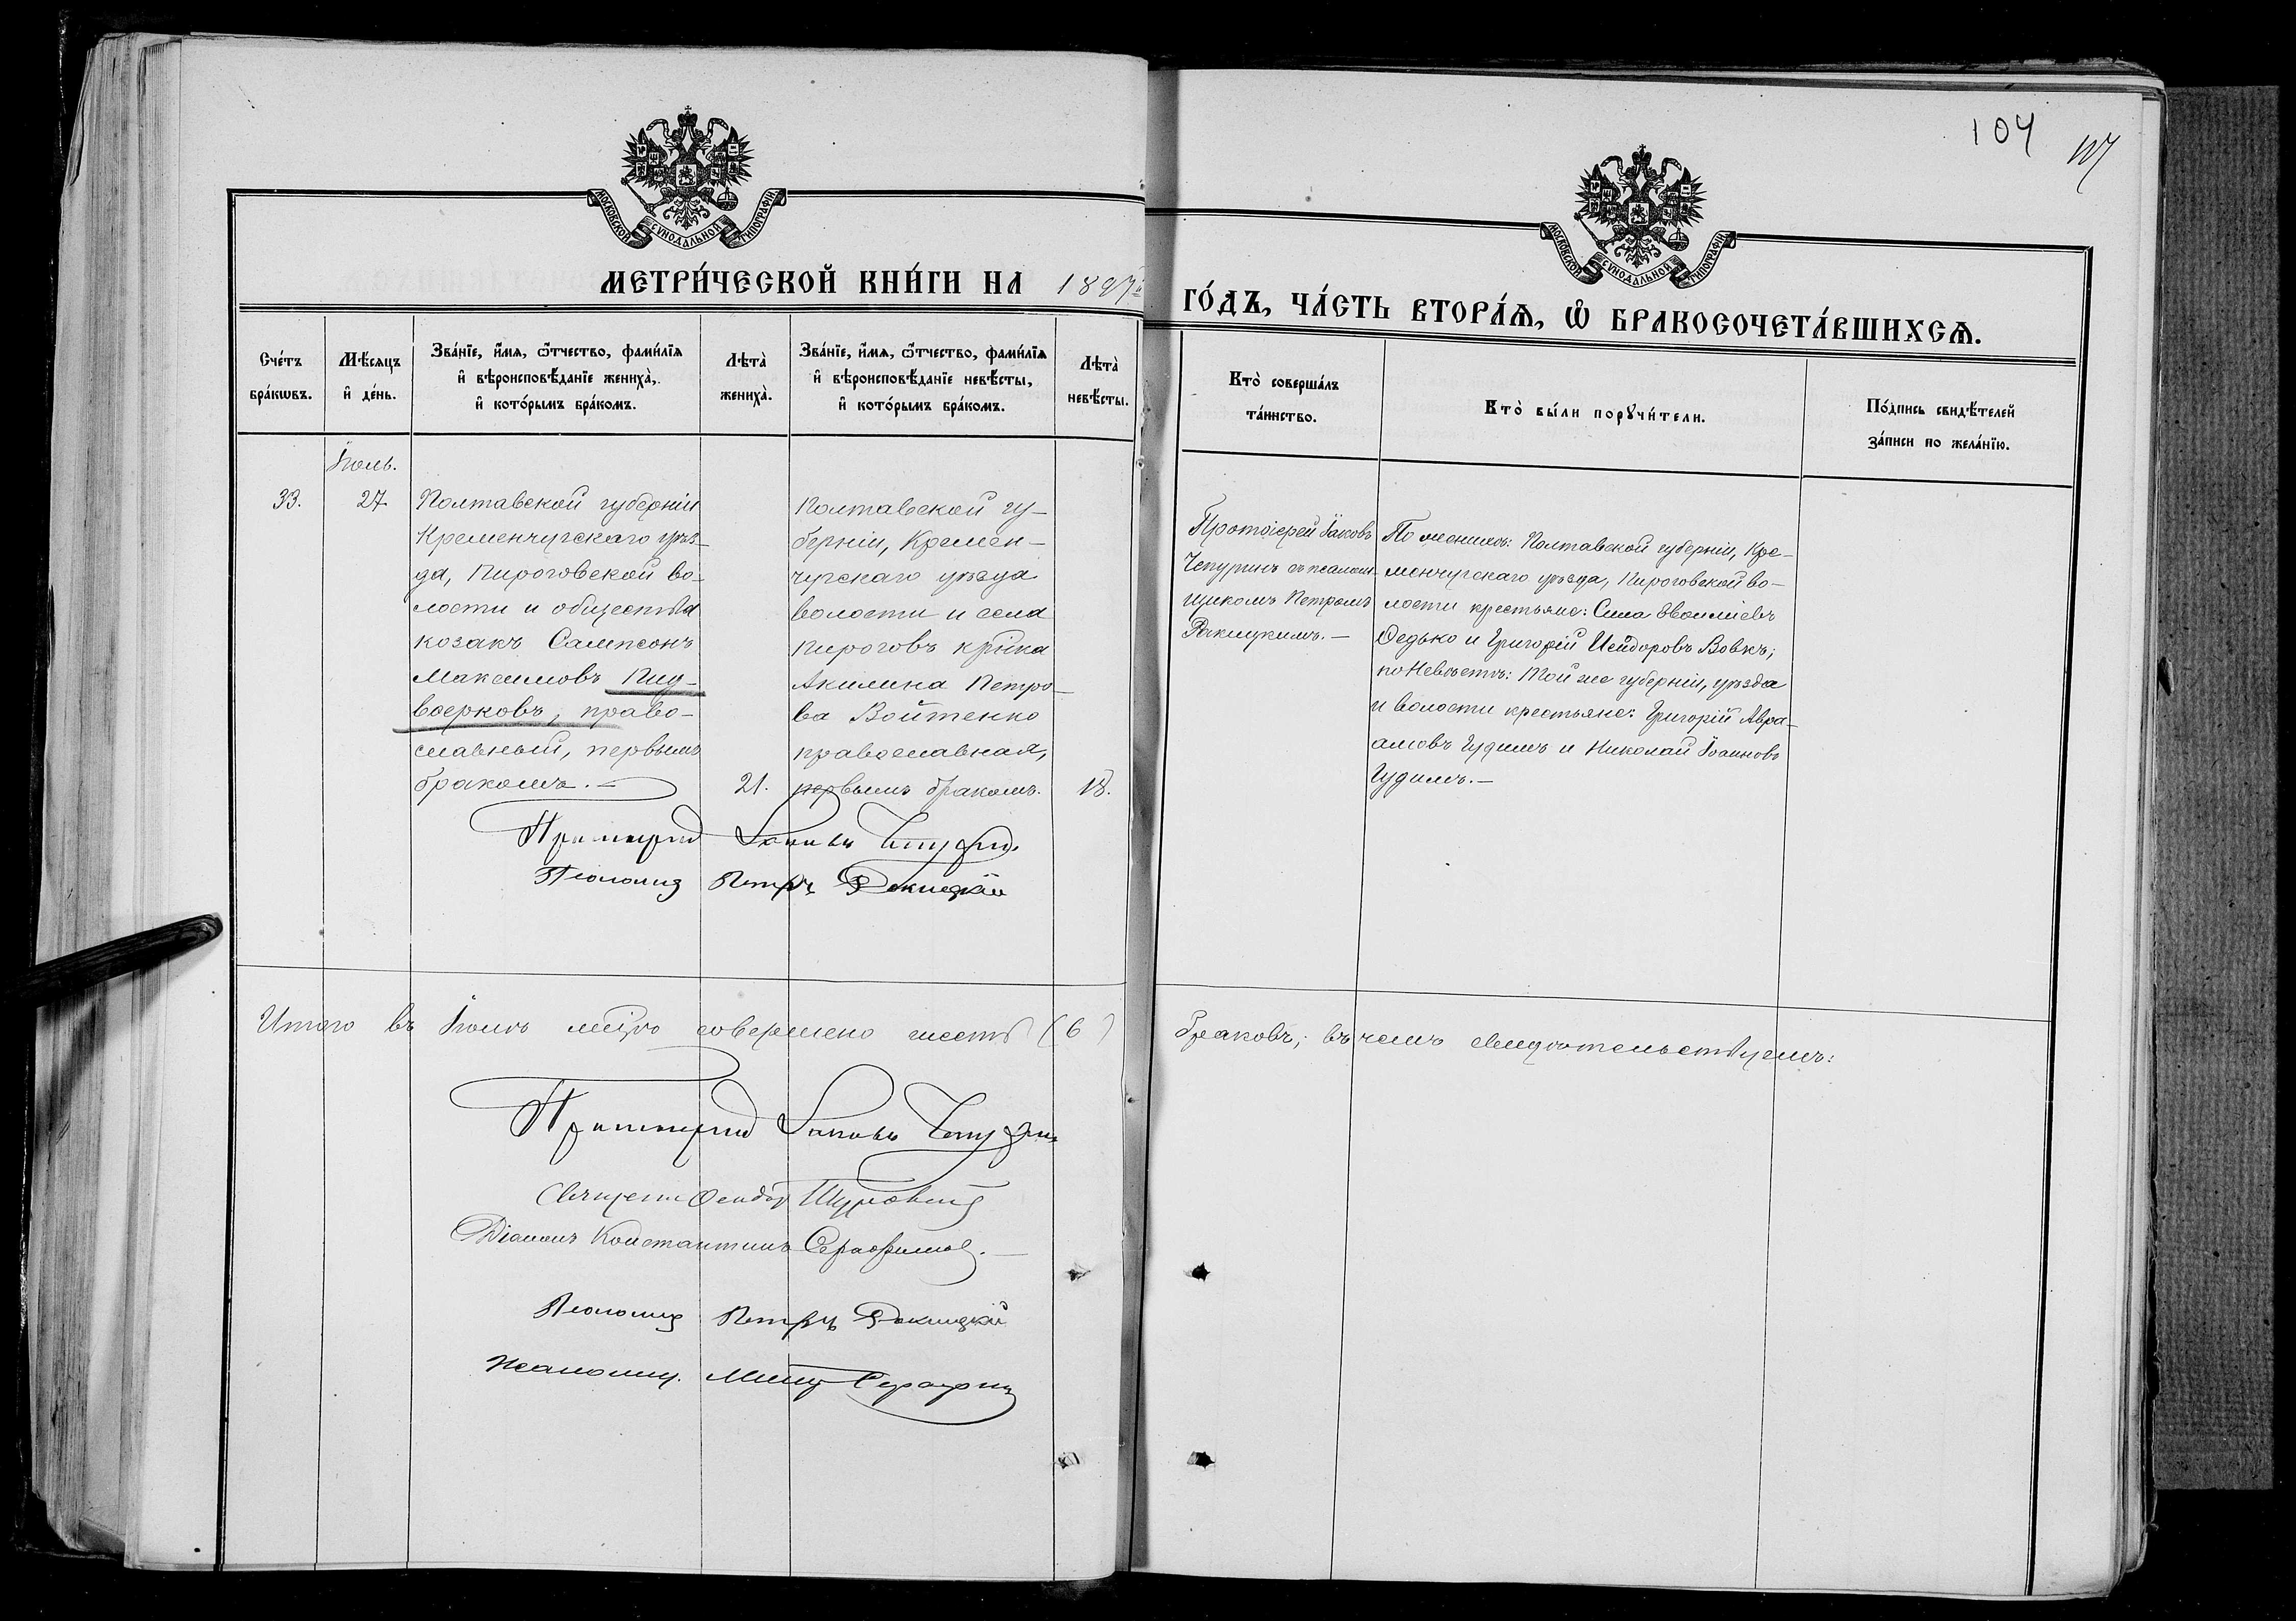 104
МОСКОВСКОЙ СѴНОДАЛЬНОЙ ТИПОГРАФІИ.
МОСКОВСКОЙ СѴНОДАЛЬНОЙ ТИПОГРАФІИ.
МЕТРИ́ЧЕСКОЙ КНИ́ГИ НА 1897й
ГО́ДЪ, ЧА́СТЬ ВТОРА́Ѧ, Ѡ҆ БРАКОСОЧЕТА́ВШИХСѦ.
Сче́тъ
бра́кѡвъ.
Мѣ́сяцъ
и҆ де́нь.
Зва́нїе, и҆́мя, ѻ҆́тчество, фами́лїя
и҆ вѣроисповѣ́данїе жениха̀,
и҆ кото́рымъ бра́комъ.
Лѣта̀
жениха̀.
Зва́нїе, и҆́мя, ѻ҆́тчество, фами́лїя
и҆ вѣроисповѣ́данїе невѣ́сты,
и҆ кото́рымъ бра́комъ.
Лѣта̀
невѣ́сты.
Кто̀ соверша́лъ
та́инство.
Кто̀ бы́ли порꙋчи́тели.
По́дпись свидѣ́телей
за́писи по жела́нїю.
Іюль.
33.
27.
Полтавской губерніи
Кременчугскаго уѣз-
да, Пироговской во-
лости и общества
козакъ Сампсонъ
Максимовъ Пид-
воерковъ, право-
славный, первымъ
бракомъ.—
21.
Полтавской гу-
берніи, Кремен-
чугскаго уѣзда
волости и села
Пироговъ кр͠нка
Акилина Петро-
ва Войтенко
православная,
первымъ бракомъ.
18.
Протоіерей Іаковъ
Чепуринъ съ псалом-
щикомъ Петромъ
Ракицкимъ.—
По женихѣ: Полтавской губерніи, Кре-
менчугскаго уѣзда, Пироговской во-
лости крестьяне: Сила
Федько и Григорій Исидоровъ Вовкъ;
по Невѣстѣ: Той же губерніи, уѣзда
и волости крестьяне: Григорій Авра-
амовъ Гудимъ и Николай Іоанновъ
Гудимъ.—
Протоіерей Іаковъ Чепуринъ
Псаломщ Петръ Ракицкій
Итого въ Іюлѣ м͠цѣ совершено шесть (6)
браковъ; въ чемъ свидѣтельствуемъ:
Протоіерей Іаковъ Чепуринъ
Священн Ѳеодор
Діаконъ Константинъ Серафимов.—
Псаломщ Петръ Ракицкій
Псаломщ.